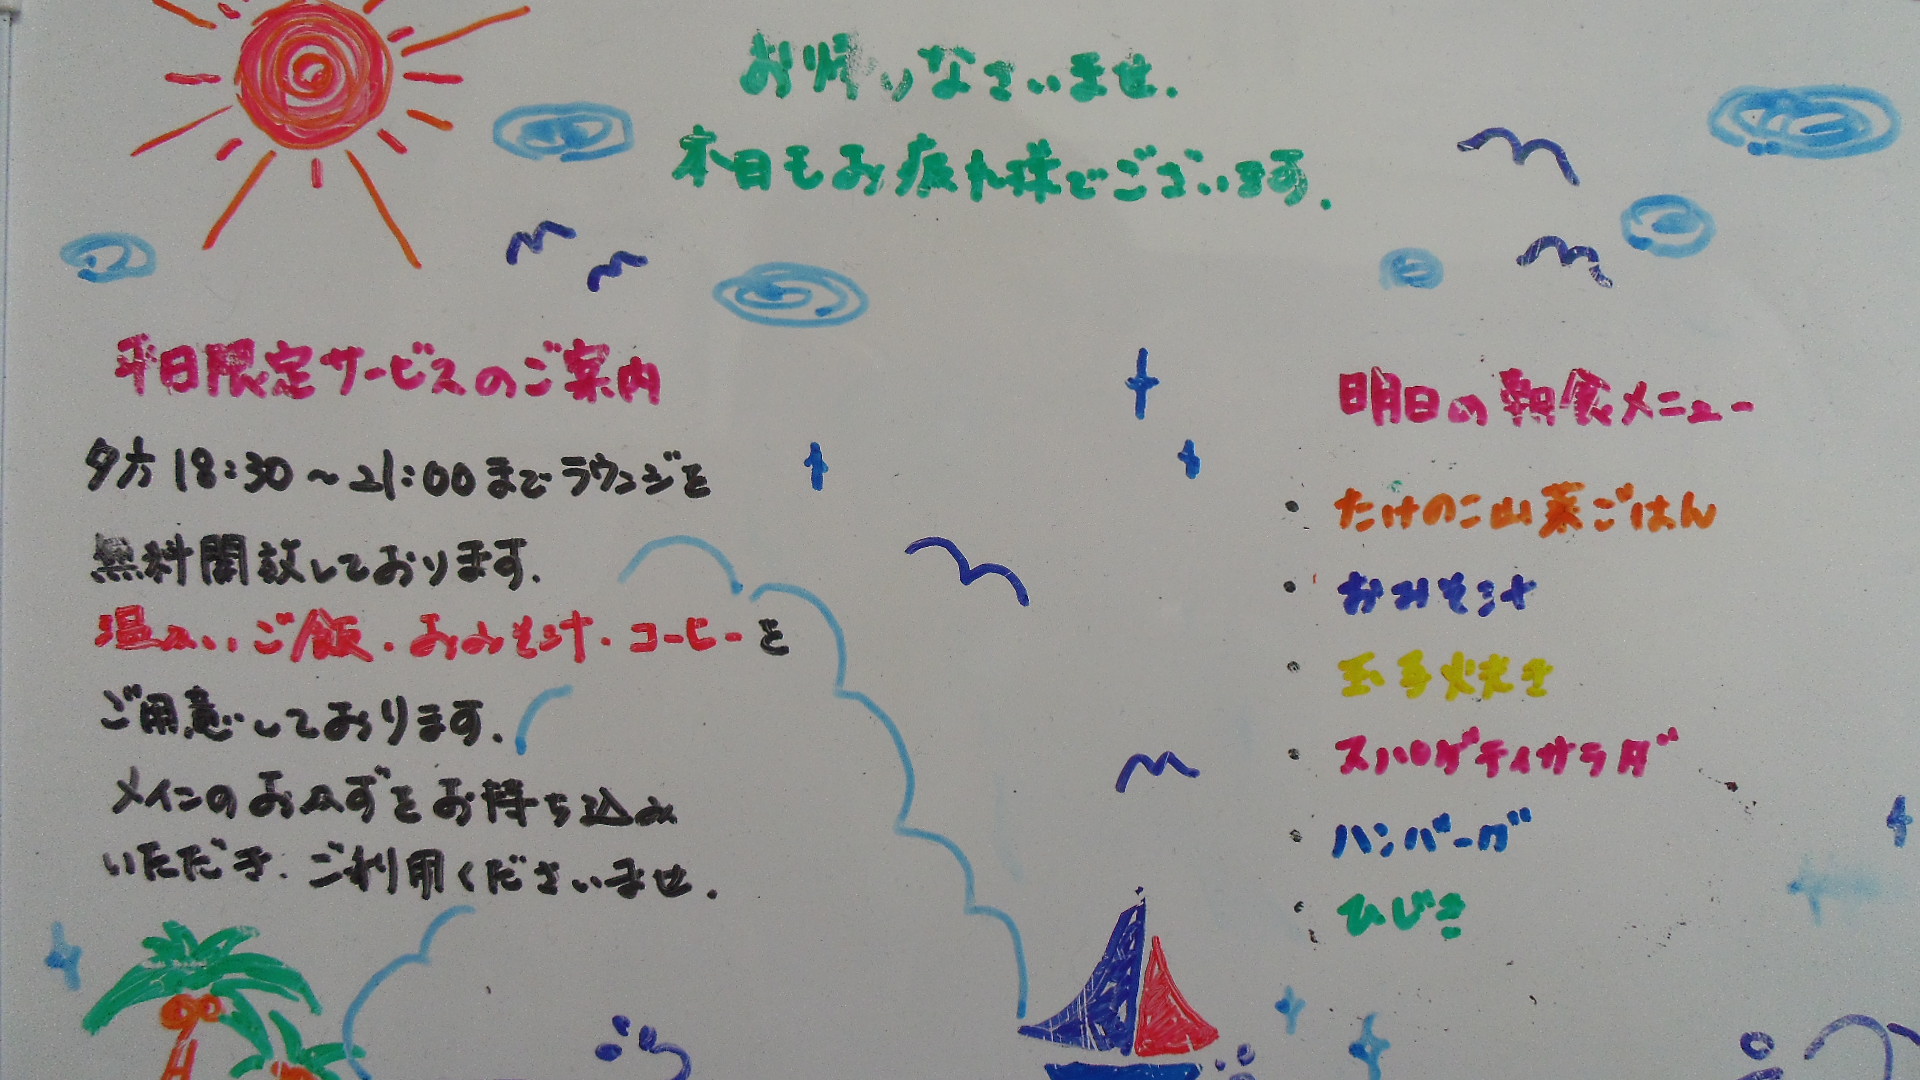 お帰りなさいませ.
本日もお疲れ様でございます.
平日限定サービスのご案内
夕方18:30～21:00までラウンジを
無料開放しております.
温かいご飯・おみそ汁・コーヒーを
ご用意しております.
メインのおかずをお持ち込み
いただき.ご利用くださいませ.
明日の朝食メニュー
・たけのこ山菜ごはん
・おみそ汁
・玉子焼き
・スパゲティサラダ
・ハンバーグ
・ひじき